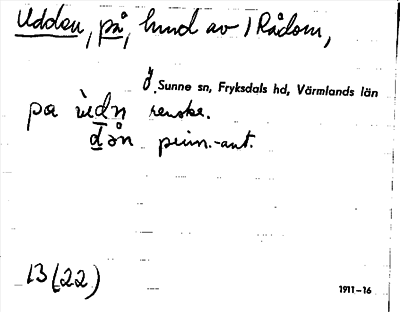 Udden, på, hmd av 1 Rådom,
ö. Sunne sn, Fryksdals hd, Värmlands län
pa ùdn renske.
dån prim.-ant.
13 (22)
1911-16